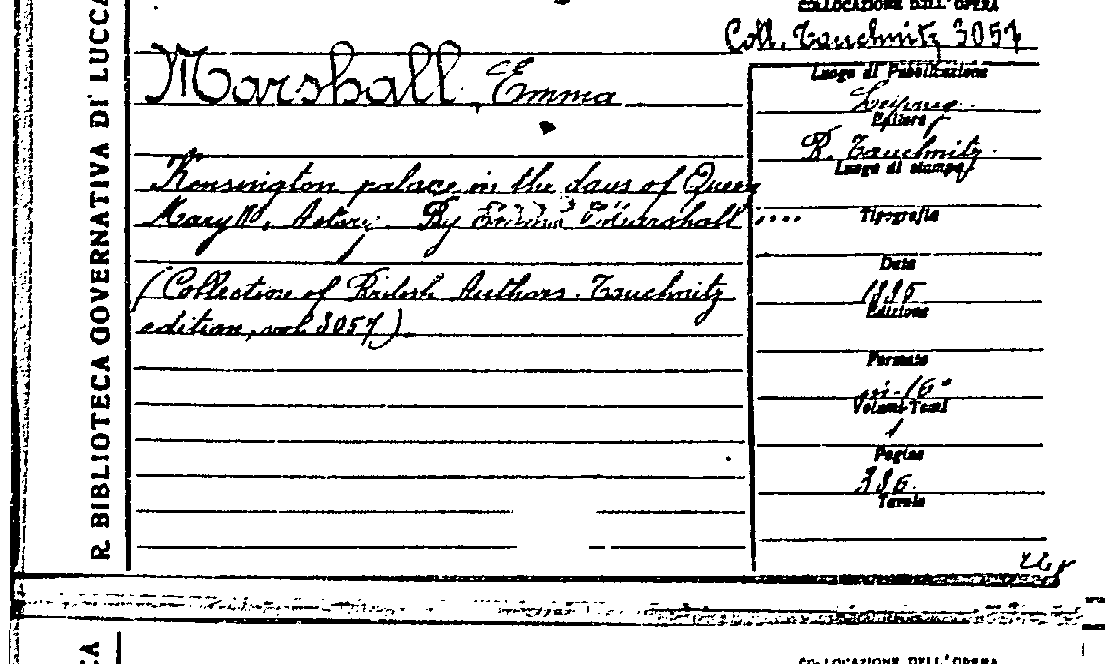 R. BIBLIOTECA GOVERNATIVA DI LUCCA
COLLOCAZIONE DELL'OPERA
Coll. Tauchnitz 3057
Marshall, Emma
Kensington palace in the days of Queen
Mary II, A story. By Emma Marshall ....
(Collection of British Authors. Tauchnitz
edition, vol 3057).
Luogo di Pubblicazione
Leipzig
Editore
B. Tauchnitz.
Luogo di stampa
Tipografia
Data
1895
Edizione
Formato
in-16°
Volumi-Tomi
1
Pagine
Tavole
COLLOCAZIONE DELL'OPERA
CA